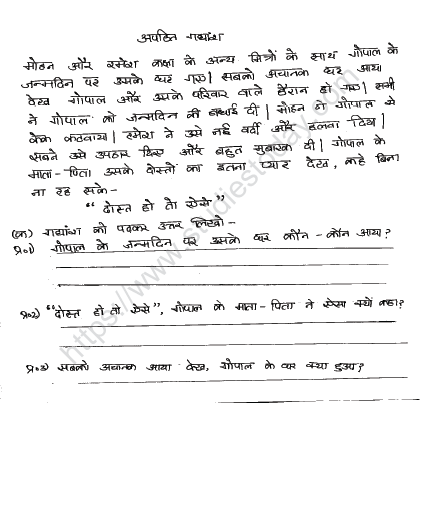 अपठित गद्यांश
मोहन और रमेश कक्षा के अन्य मित्रों के साथ गोपाल के
जन्मदिन पर उसके घर गए| सबको अचानक घर आया
देख गोपाल और उसके परिवार वाले हैरान हो गए| सभी
ने गोपाल को जन्मदिन की बधाई दी| मोहन ने गोपाल से
केक कटवाया| रमेश ने उसे नई वर्दी और दिया|
सबने उसे उपहार दिए और बहुत मुबारक दी| गोपाल के
माता-पिता उसके दोस्तों का इतना प्यार देख, कहे बिना
ना रह सके-
"दोस्त हो तो ऐसे"
(क) गद्यांश को पढ़कर उत्तर लिखो-
प्र०1) गोपाल के जन्मदिन पर उसके घर कौन-कौन आए?
प्र०2) "दोस्त हो तो ऐसे", गोपाल के माता-पिता ने ऐसा क्यों कहा?
प्र०3) सबको अचानक आया देख, गोपाल के घर क्या हुआ?
https://www.studiestoday.com